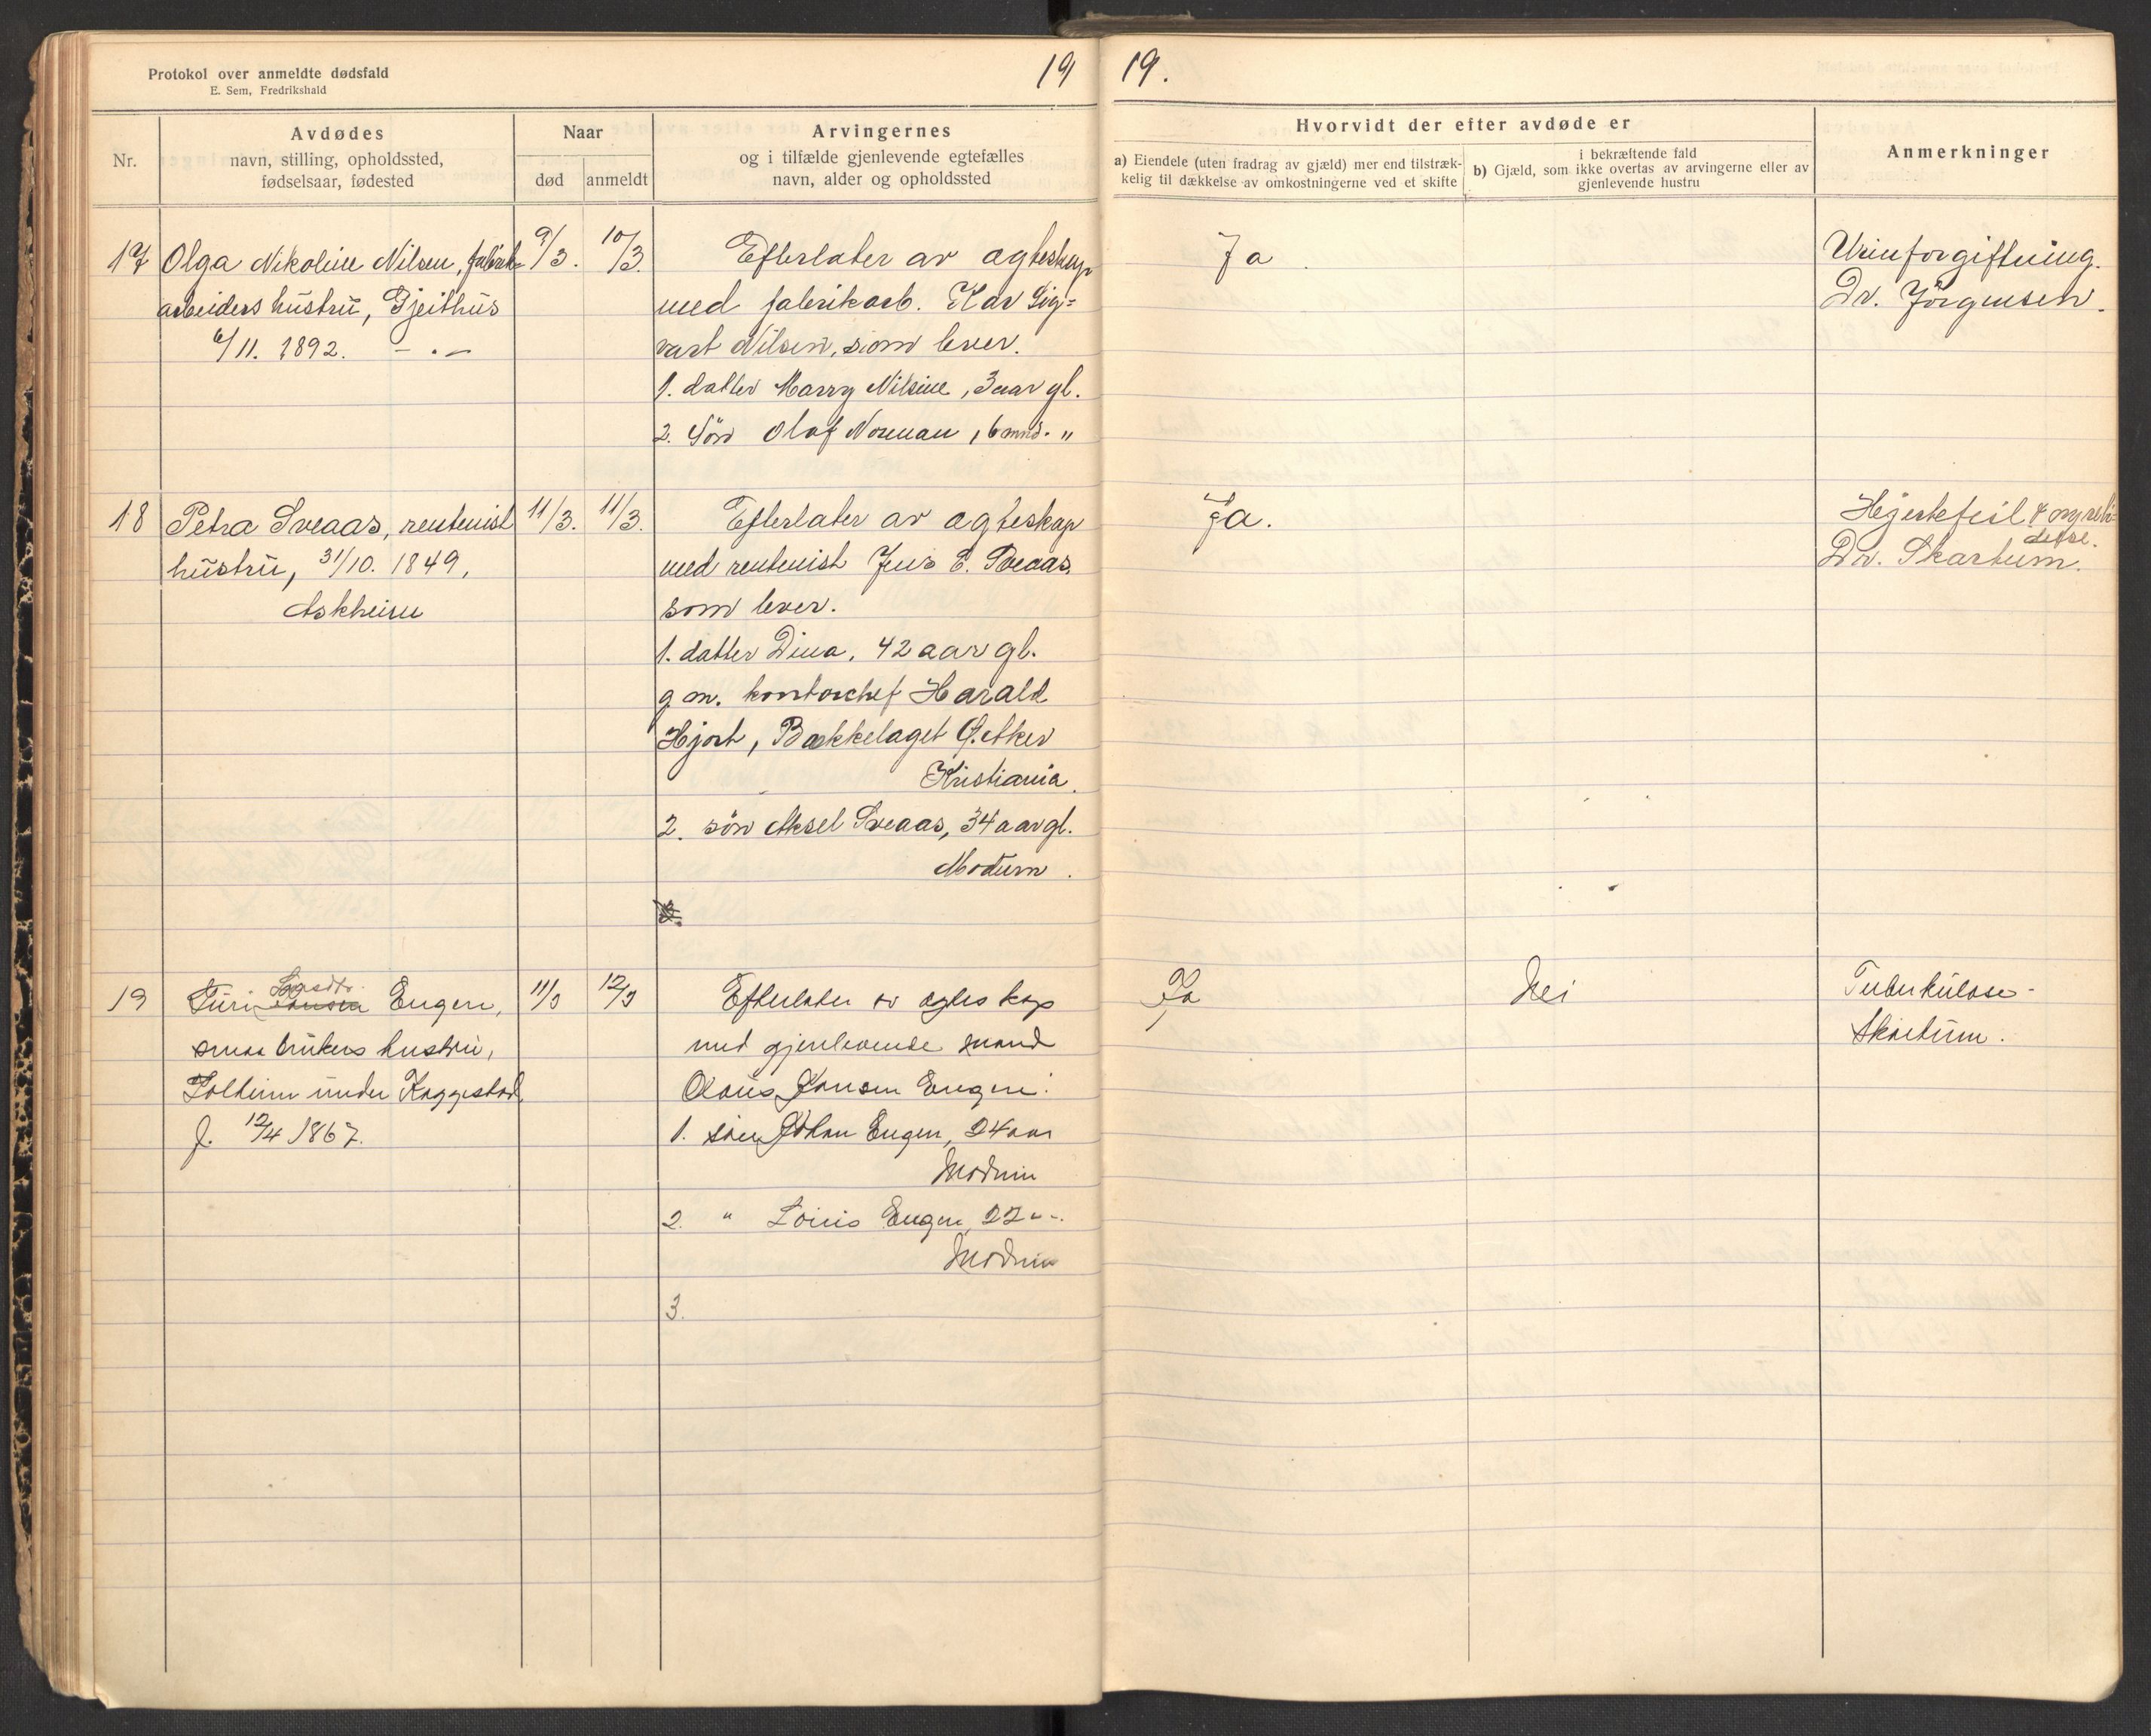 Protokol over anmeldte dødsfald
E. Sem, Fredrikshald
19
Nr.
Avdødes
navn, stilling, opholdssted,
fødselsaar, fødested
Naar
død
anmeldt
Arvingernes
og i tilfælde gjenlevende egtefælles
navn, alder og opholdssted
17
Olga Nikoline Nilsen, fabrik-
arbeiders hustru, Gjeithus
6/11. 1892. — . —
9/3.
10/3.
Efterlater av ægteskap
med fabrikarb. Kar Sig=
vart Nilsen, som lever.
1. datter Marry Nilsine, 3 aar gl.
2. Søn Olaf Norman, 6 mnd. "
18
Petra Sveaas, rentenist
hustru, 31/10. 1849,
Askheim
11/3.
11/3.
Efterlater av ægteskap
med rentenist Jens E. Sveaas,
som lever.
1. datter Dina, 42 aar gl.
g m. kontorchef Harald
Hjort, Bækkelaget Ø. Aker
Kristiania.
2. søn Aksel Sveaas, 34 aar gl.
Modum.
19
Turi Engen,
smaabrukers hustru,
under Kaggestad
f. 12/4 1867.
11/3
12/3
Efterlater av ægteskap
med gjenlevende mand
Olaus Jansen Engen:
1. søn Johan Engen, 24 aar
Modum
2. " Louis Engen, 22 " -
Modum
3.
19.
Hvorvidt der efter avdøde er
a) Eiendele (uten fradrag av gjæld) mer end tilstræk-
kelig til dækkelse av omkostningerne ved et skifte
i bekræftende fald
b) Gjæld, som ikke overtas av arvingerne eller av
gjenlevende hustru
Anmerkninger
Ja
Urinforgiftning.
Dr. Jörgensen.
Ja.
Hjertefeil
Dr. Skartum.
Ja
Nei
Tuberkulose -
Skartum.